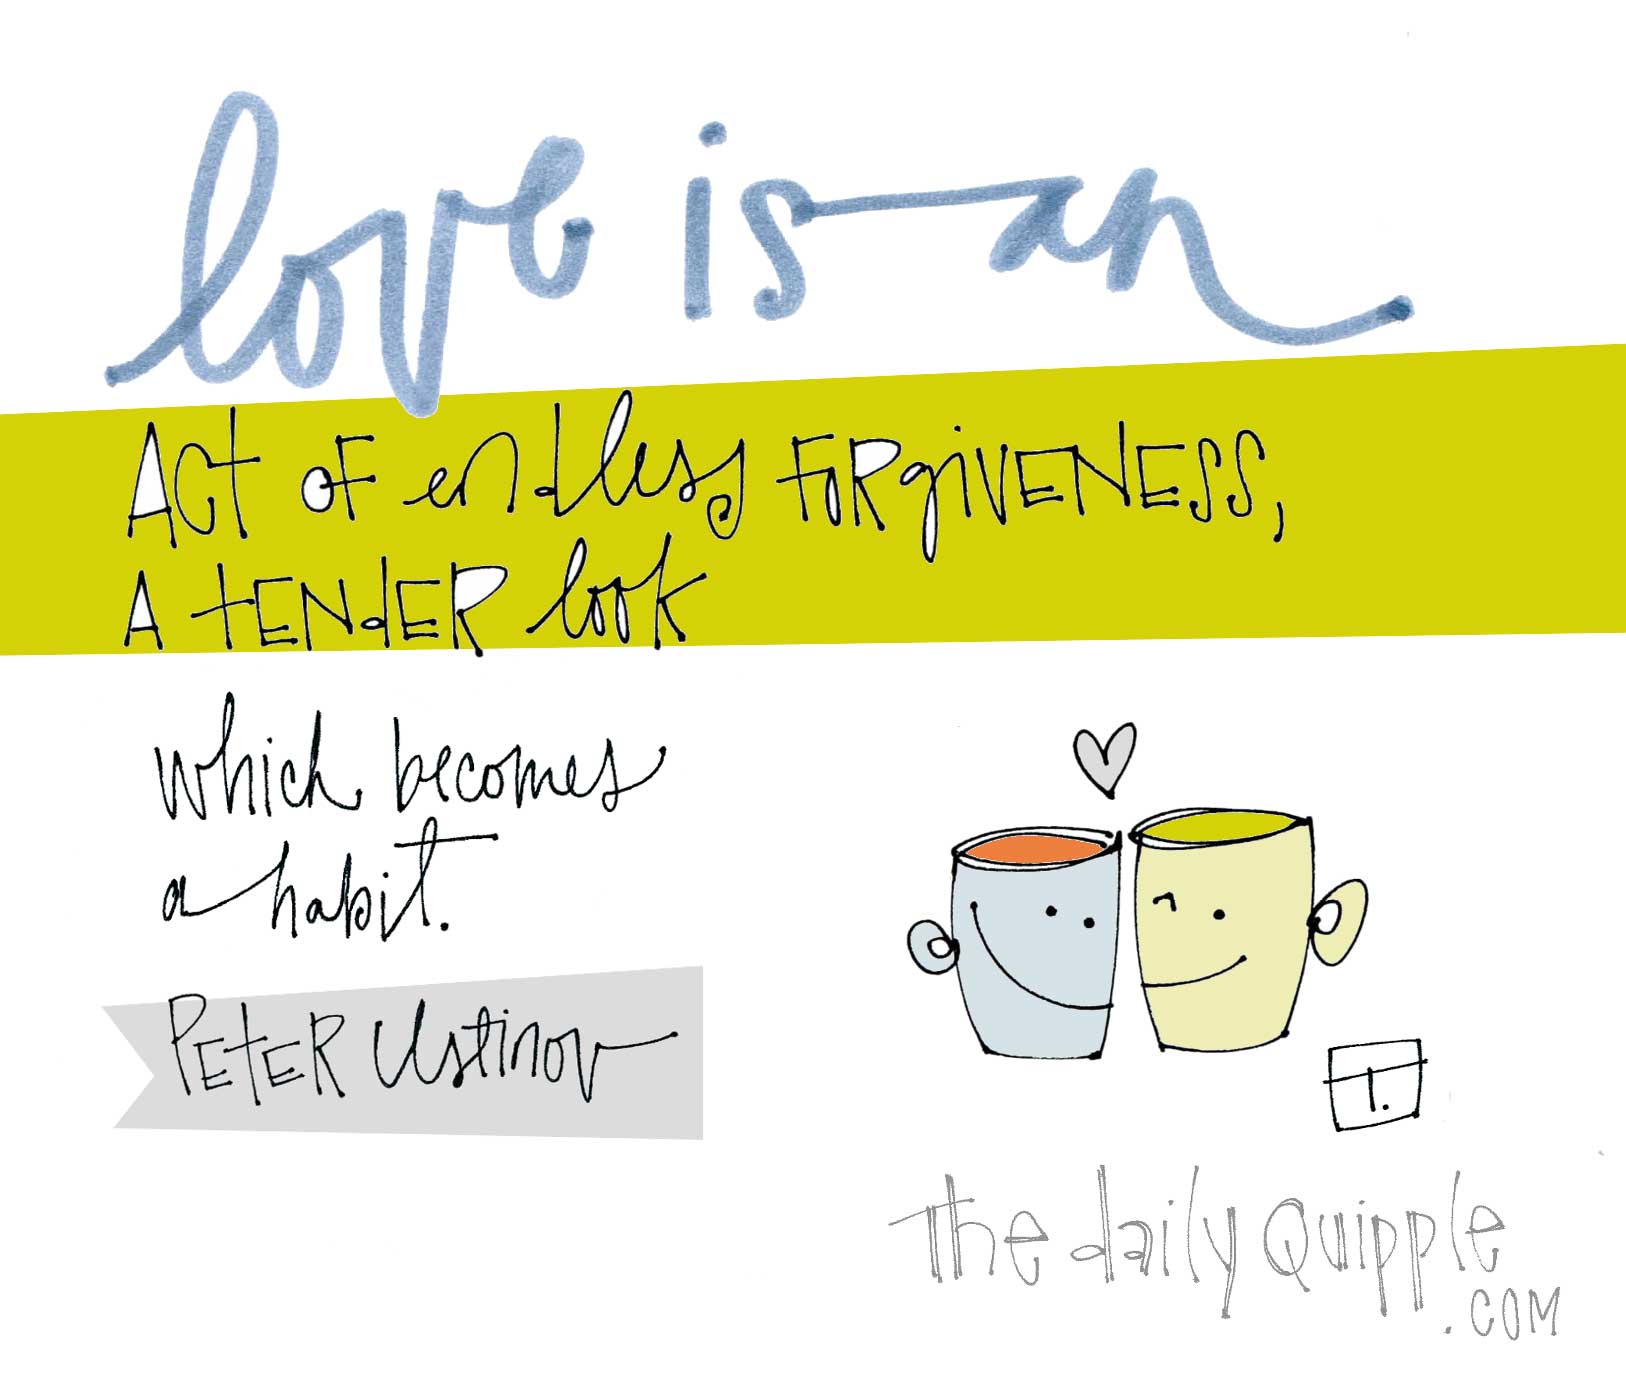 love is an
Act of endless FORgiVENESS,
A tENdER look
which becomes
a habit.
PEtER Ustinov
T.
The daily Quipple
.COM